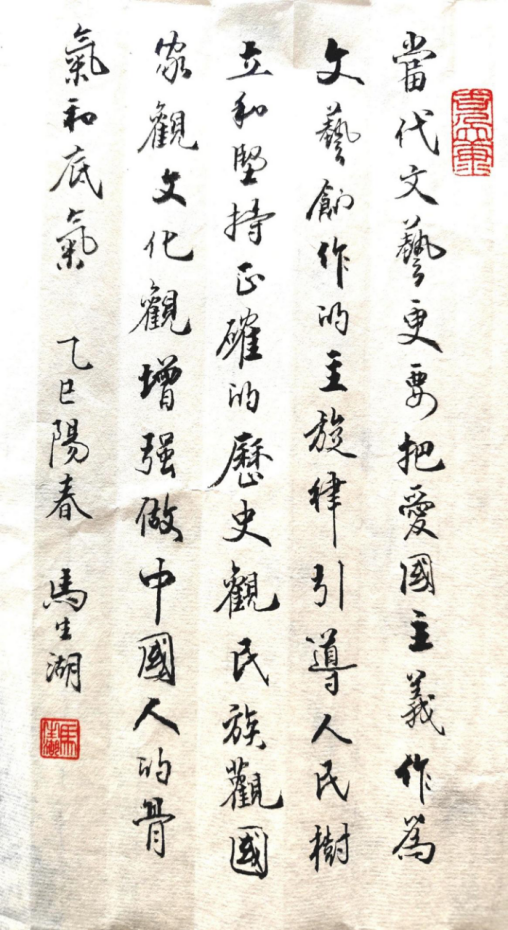 當代文藝更要把愛國主義作為
文藝創作的主旋律引導人民樹
立和堅持正確的歷史觀民族觀國
家觀文化觀增强做中國人的骨
氣和底氣
乙巳陽春 馬生湖